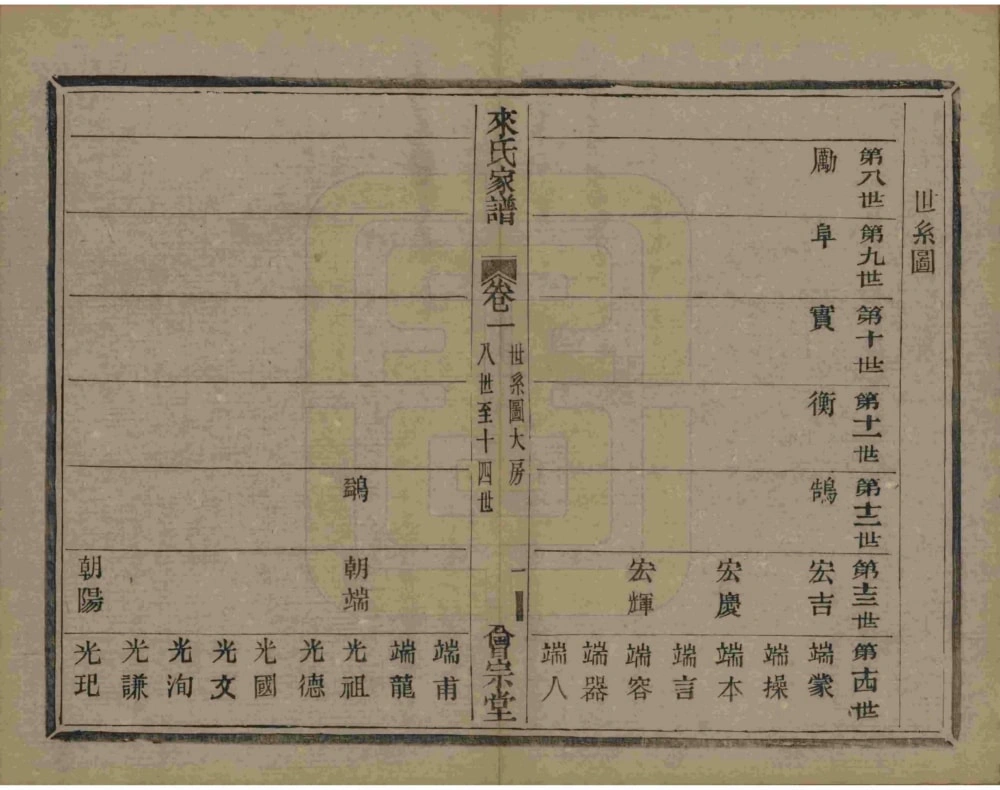 世系圖
第八世
第九世
第十世
第十一世
第十二世
第十三世
第十四世
勵
阜
實
衡
鵠
宏吉
端蒙
端操
宏慶
端本
端言
宏輝
端容
端器
端八
來氏家譜
卷一
世系圖大房
八世至十四世
一
會宗堂
端甫
端龍
鷄
朝端
光祖
光德
光國
光文
光洵
光謙
朝陽
光玘